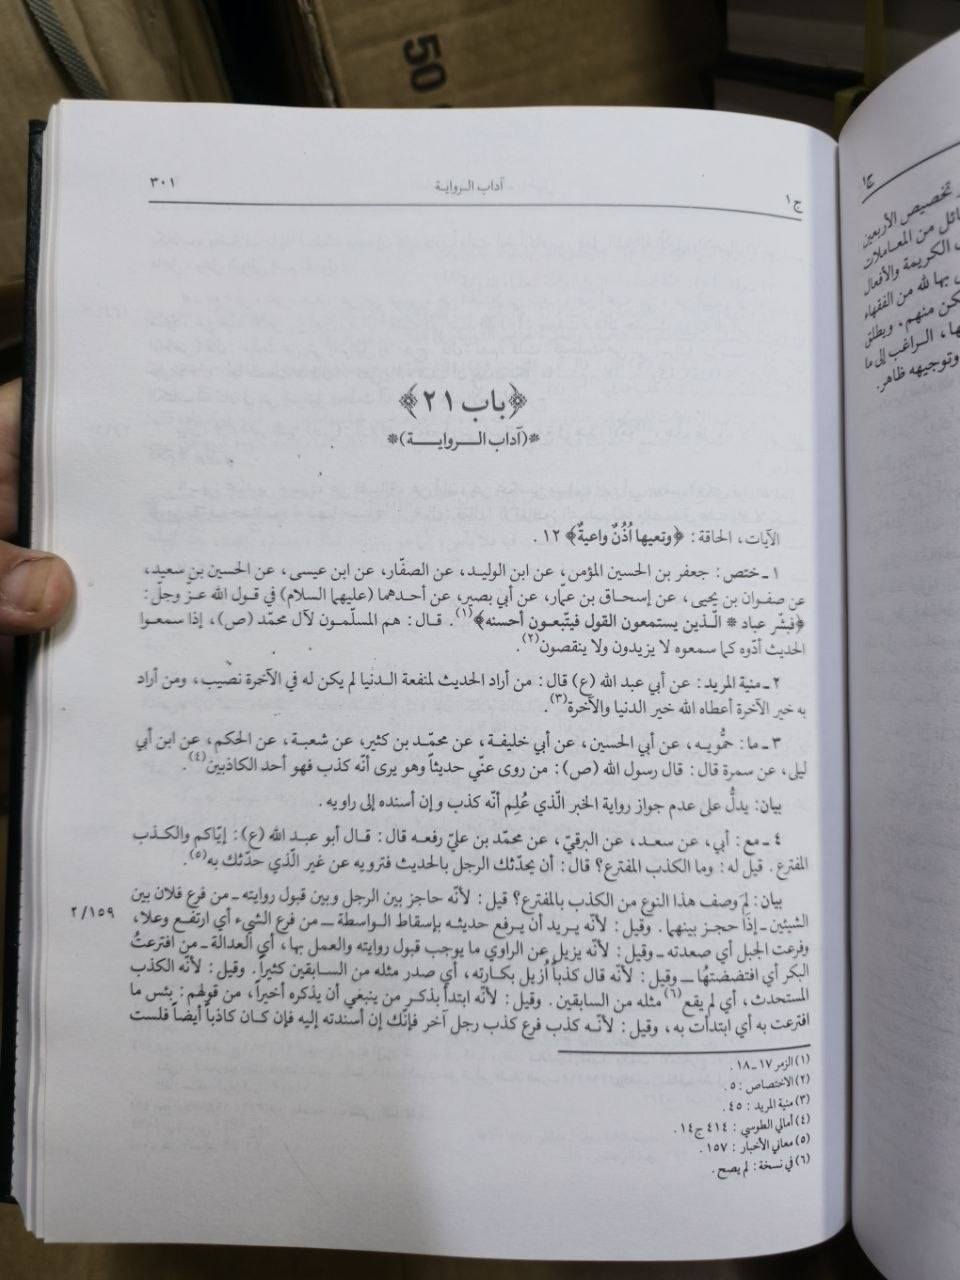 50
ج١ آداب الـروايـة ٣٠١
﴿باب ٢١﴾
*(آداب الـــروايـــة)*
الآيات، الحاقة: ﴿وتعيها اُذُنٌ واعيةٌ﴾ ١٢.
١ ـ ختص: جعفر بن الحسين المؤمن، عن ابن الوليد، عن الصفّار، عن ابن عيسى، عن الحسين بن سعيد،
عن صفوان بن يحيى، عن إسحاق بن عمّار، عن أبي بصير، عن أحدهما (عليهما السلام) في قول الله عزّ وجلّ:
﴿فبشّر عباد * الّـذين يستمعون القول فيتّبعـون أحسنه﴾(١). قـال: هم المسلّمـون لآل محمّد (ص)، إذا سمعـوا
الحديث أدّوه كما سمعوه لا يزيدون ولا ينقصون(٢).
٢ ـ منية المريد: عن أبي عبد الله (ع) قال: من أراد الحديث لمنفعة الدنيا لم يكن له في الآخرة نصيب، ومن أراد
به خير الآخرة أعطاه الله خير الدنيا والآخرة(٣).
٣ ـ ما: حمّويـه، عن أبي الحسين، عن أبي خليفـة، عن محمّـد بن كثير، عن شعبـة، عن الحكم، عن ابن أبي
ليلى، عن سمرة قال: قال رسول الله (ص): من روى عنّي حديثاً وهو يرى أنّه كذب فهو أحد الكاذبين(٤).
بيان: يدلُّ على عدم جواز رواية الخبر الّذي عُلِم أنّه كذب وإن أسنده إلى راويه.
٤ ـ مع: أبي، عن سعـد، عن البرقيّ، عن محمّـد بن عليّ رفعـه قال: قـال أبو عبـد الله (ع): إيّاكم والكـذب
المفترع. قيل له: وما الكذب المفترع؟ قال: أن يحدّثك الرجل بالحديث فترويه عن غير الّذي حدّثك به(٥).
بيان: لِمَ وصف هذا النوع من الكذب بالمفترع؟ قيل: لأنّه حاجز بين الرجل وبين قبول روايته ـ من فرع فلان بين
الشيئين ـ إذا حجـز بينهمـا. وقيل: لأنّـه يريـد أن يرفع حديثه بإسقاط الـواسطة ــ من فرع الشيء أي ارتفع وعلا، ٢/١٥٩
وفرعت الجبل أي صعدته ـ وقيل: لأنّه يزيل عن الراوي ما يوجب قبول روايته والعمل بها، أي العدالة ـ من افترعتُ
البكر أي افتضضتهُا ـــ وقيل: لأنّه قال كذباً اُزيل بكارته، أي صدر مثله من السابقين كثيراً. وقيل: لأنّه الكذب
المستحدث، أي لم يقع(٦) مثله من السابقين. وقيل: لأنّه ابتدأ بذكر من ينبغي أن يذكره أخيراً، من قولهم: بئس ما
افترعت به أي ابتدأت به، وقيل: لأنّـه كذب فرع كذب رجل آخر فإنّك إن أسندته إليه فإن كـان كاذبـاً أيضـاً فلست
(١) الزمر ١٧ ـ ١٨.
(٢) الاختصاص: ٥.
(٣) منية المريد: ٤٥.
(٤) أمالي الطوسي: ٤١٤ ج١٤.
(٥) معاني الأخبار: ١٥٧.
(٦) في نسخة: لم يصح.
ج١
تخصيص الأربعين
من المعـاملات
الكريمة والأفعال
بها لله من الفقهاء
منهم. ويطلق
الـراغب إلى ما
وتوجيهه ظاهر.